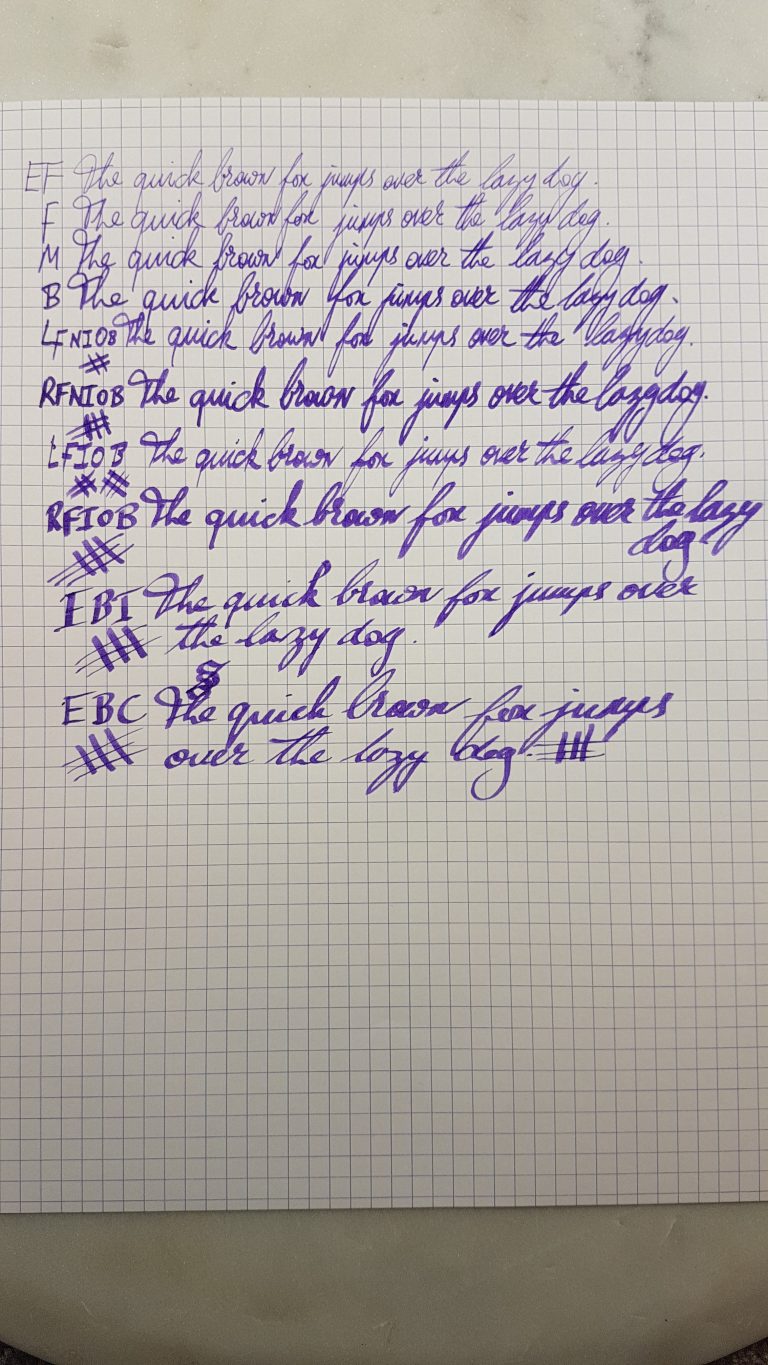 EF The quick brown fox jumps over the lazy dog.
F The quick brown fox jumps over the lazy dog.
M The quick brown fox jumps over the lazy dog.
B The quick brown fox jumps over the lazy dog.
LFNIOB The quick brown fox jumps over the lazy dog.
RFNIOB The quick brown fox jumps over the lazy dog.
LFIOB The quick brown fox jumps over the lazy dog.
RFIOB The quick brown fox jumps over the lazy
dog
EBI The quick brown fox jumps over
the lazy dog.
EBC The quick brown fox jumps
over the lazy dog.